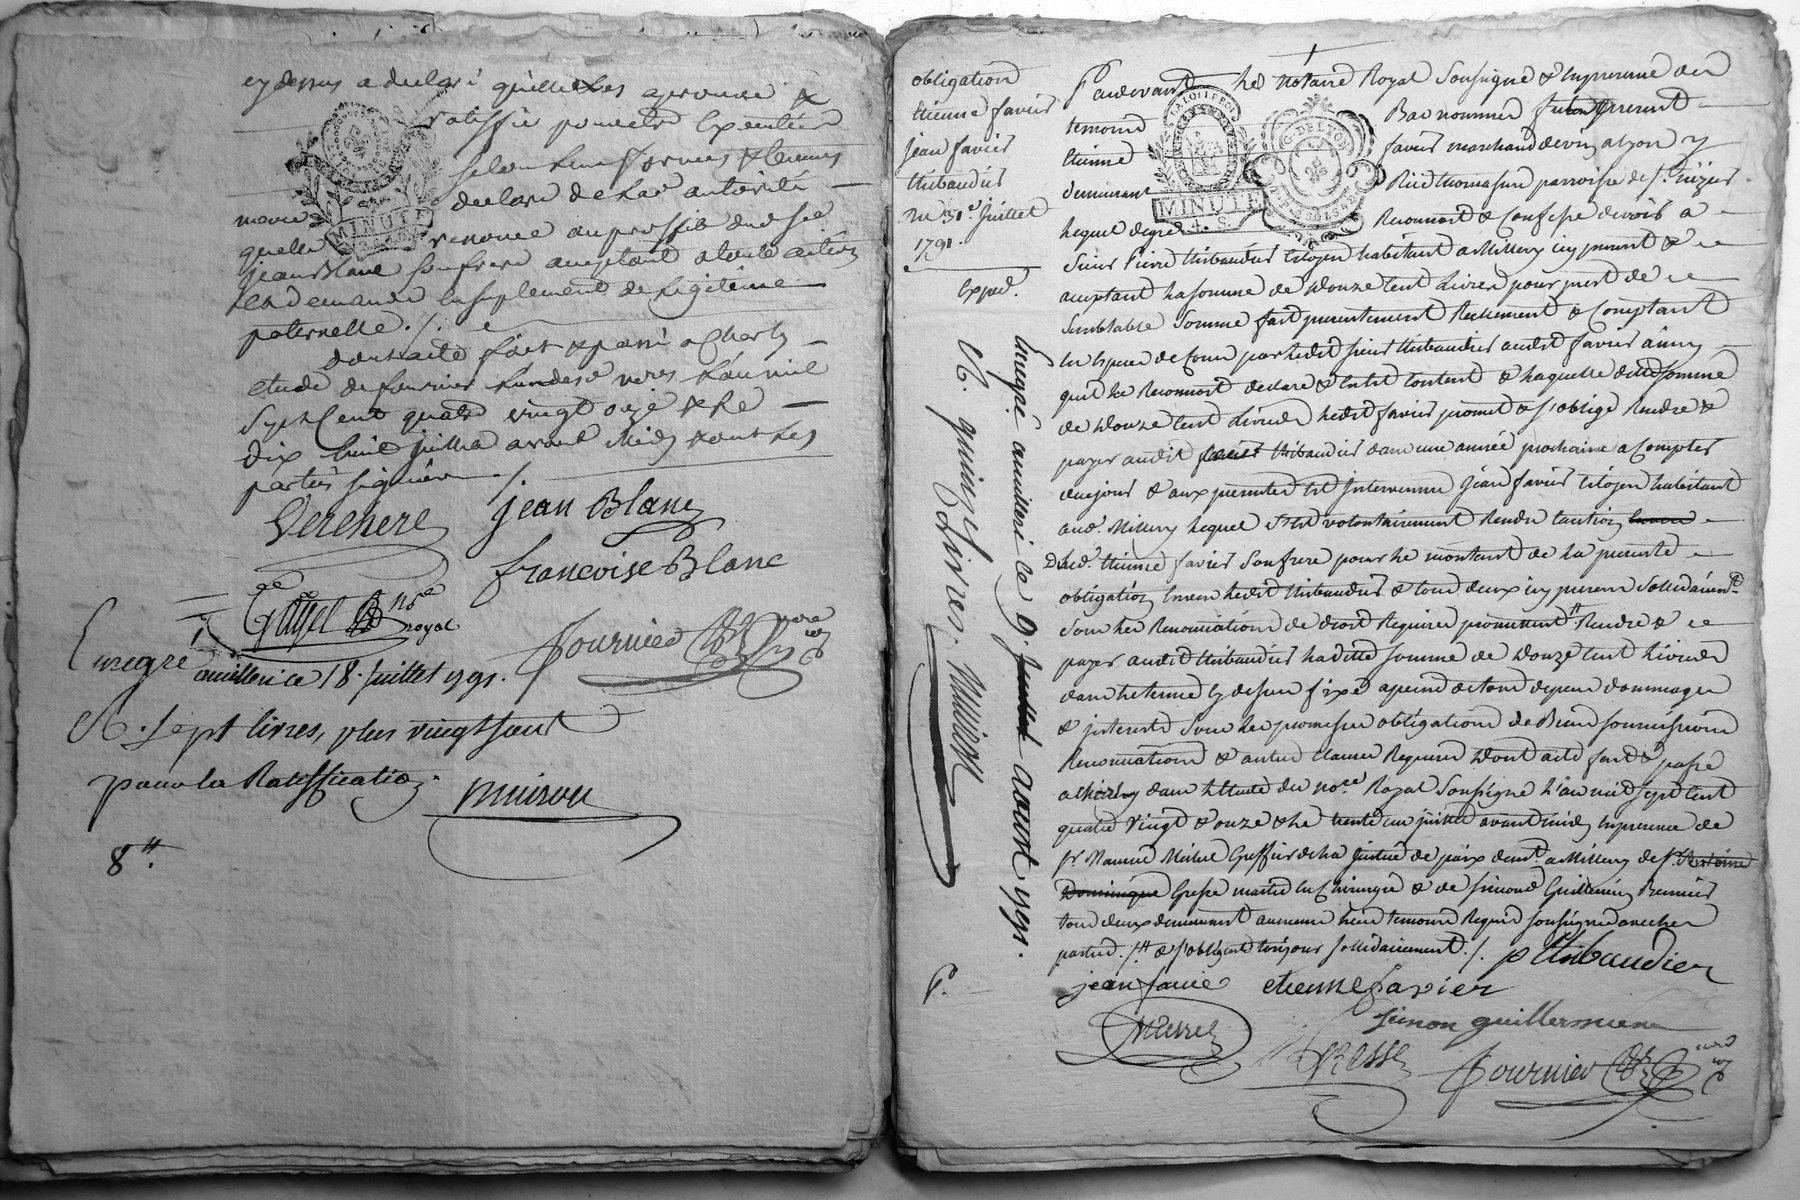 cydessus a declaré quille les aprouve &
ratiffie pour etre Executées
selon leurs formes & teneurs
declare de la autorité
MINUTE
renonce au proffit dudt sr
jean Blanc son frere acceptant a toute action
et demande en suplement de legitime
paternelle ./.
dont acte fait & passé a Charly
etude de fournier lundese vers l'an mil
Sept Cent quatre vingt onze & le
dix huit juillet avant midy & ont les
parties signé ./.
Verchere jean Blanc
francoise Blanc
Gayet nre royal
fournier nore
Enregré amillerice 18. juillet 1791.
R. Sept livres, plus vingt sous
pour la Ratiffication
Muison
8 tt.
obligation
Etienne favier
jean favier
thibaudier
Du 31e juillet
1791.
Exped.
Enregré amilleri ce 9 juillet aoust 1791.
R. quinze livres. Muison
Pardevant Le notaire Royal Soussigné & Enpresence des
temoins Bas nommés fut present
A LOI LE ROI
G. DE LYON
Etienne favier marchand devin a lyon y
demeurant Rue thomassin parroisse de st. nizier
MINUTE
4. S.
lequel degré Reconnoit & Confesse devoir a
Sieur Pierre thibaudier Citoyen habitant a Millery icy present &
acceptant La somme de Douze Cent Livres pour pret de
semblable Somme fait presentement Reellement & Comptant
En Espece de Cour par Ledit sieur thibaudier audit favier ainsy
quil Le Reconnoit declare & En Est Content & Laquelle ditte somme
de Douze Cent Livres Ledit favier promet & s'oblige Rendre &
payer audit favier thibaudier dans une année prochaine a Compter
dujour & aux presentes Est Intervenu jean favier Citoyen habitant
aud. Millery lequel s'Est volontairement Rendu Caution
Dud. Etienne favier Son frere pour Le montant de La presente
obligation Envers Ledit thibaudier & tous deux icy presens Sollidairemt.
Sous Les Renonciations de droit Requises promettent Rendre &
payer audit thibaudier La ditte somme de Douze Cent Livres
dans Le terme Cydessus fixé apeine de tous depens dommages
& interest Sous Les promesses obligations de Biens soumissions
Renonciations & autres Clauses Requises Dont acte fait & passé
a Charly dans L'Etude du nore. Royal Soussigné L'an mil sept Cent
quatre Vingt & onze & Le trente un juillet avant midy Enpresence de
sr. Greffier de La justice de paix demt. a Millery de sr. Antoine
Dominique Gresse maitre En Chirurgie & de simond Guillermin
tous deux demeurant aumeme Lieu temoins Requis soussignés avec Les
parties ./. & s'obligent toujours sollidairement ./. P thibaudier
jean favié etienne favier
simon guillermin
Gresse fournier nore